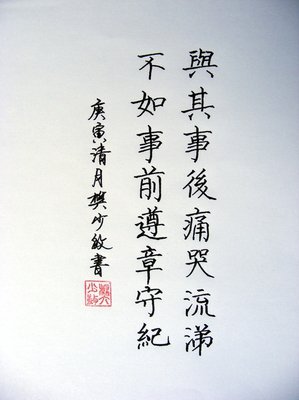 與其事後痛哭流涕
不如事前遵章守紀
庚寅清月樊少敏書